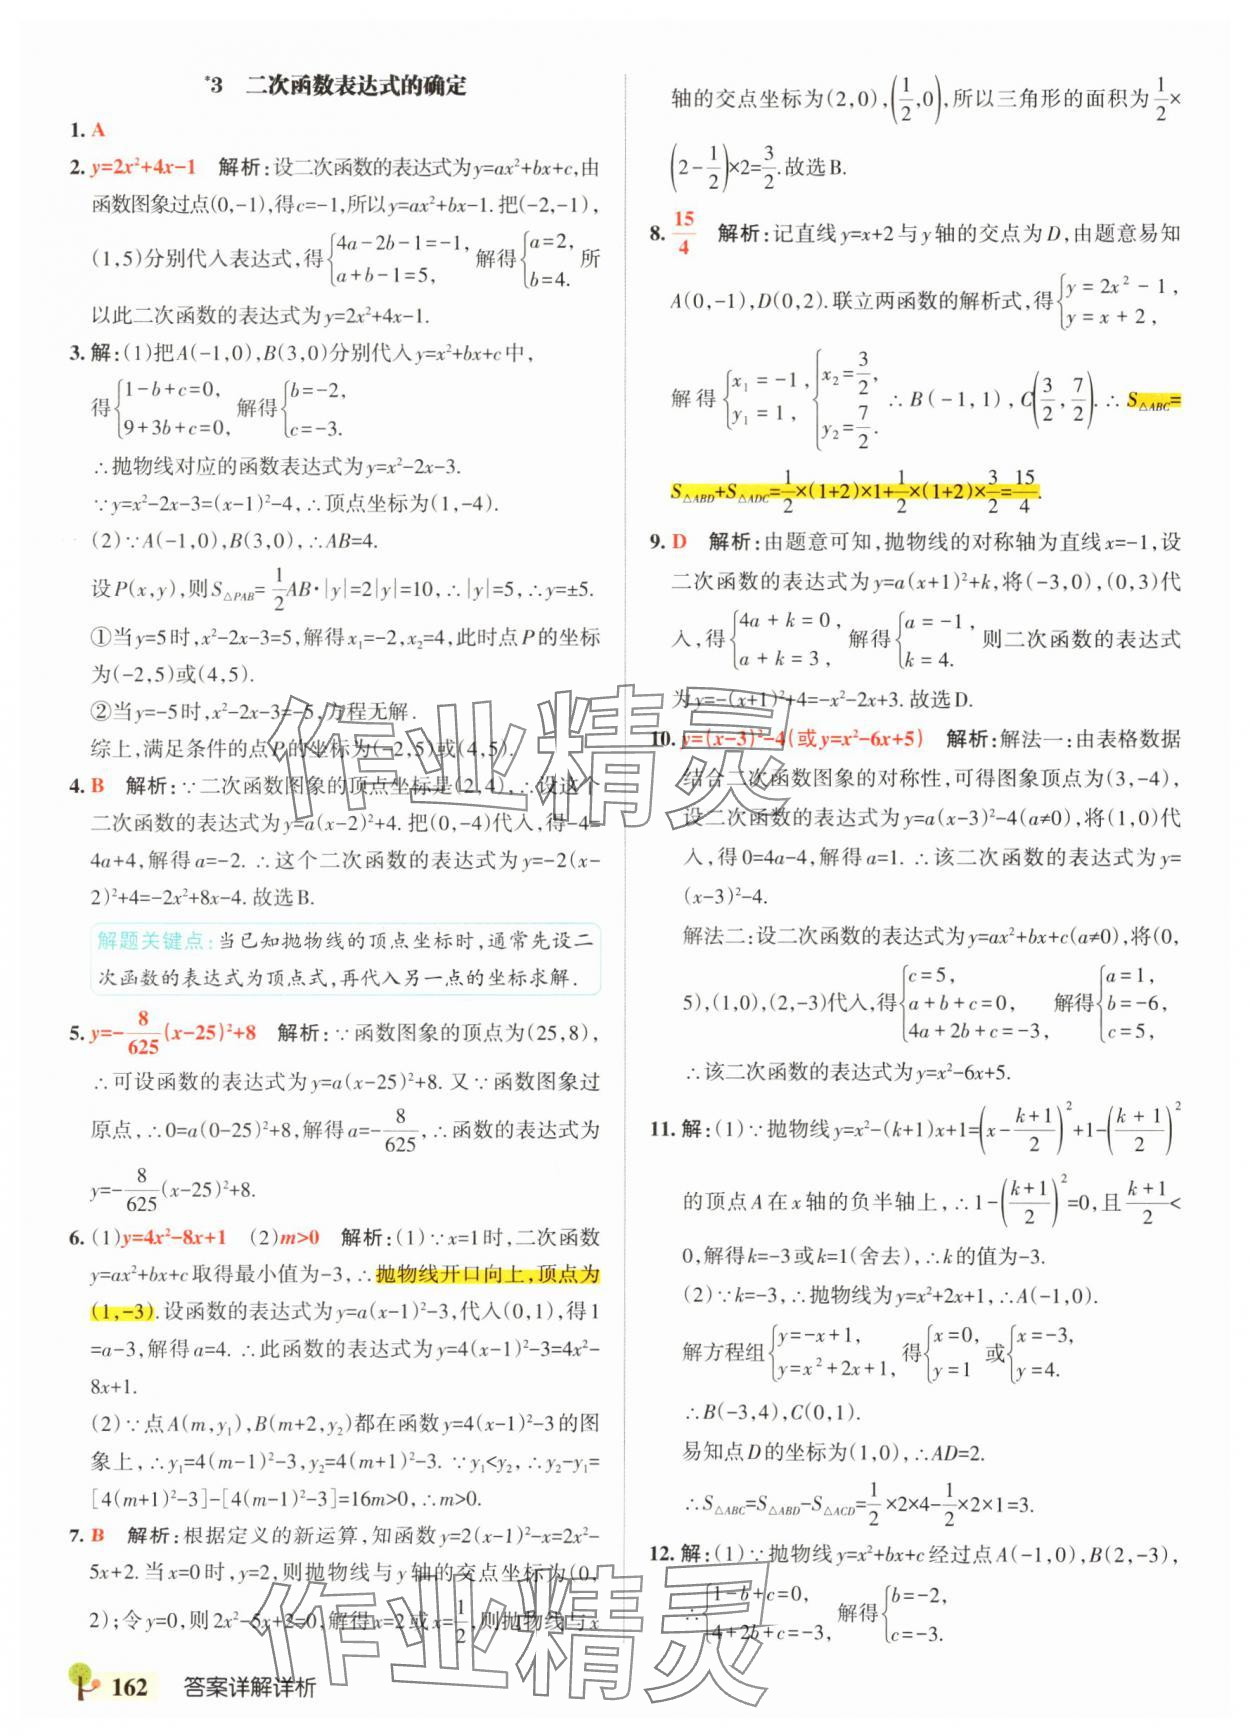 *3 二次函数表达式的确定
1. A
2. y=2x²+4x-1 解析:设二次函数的表达式为y=ax²+bx+c,由
函数图象过点(0,-1),得c=-1,所以y=ax²+bx-1.把(-2,-1),
(1,5)分别代入表达式,得{4a-2b-1=-1, a+b-1=5, 解得{a=2, b=4. 所
以此二次函数的表达式为y=2x²+4x-1.
3. 解:(1)把A(-1,0),B(3,0)分别代入y=x²+bx+c中,
得{1-b+c=0, 9+3b+c=0, 解得{b=-2, c=-3.
∴抛物线对应的函数表达式为y=x²-2x-3.
∵y=x²-2x-3=(x-1)²-4,∴顶点坐标为(1,-4).
(2)∵A(-1,0),B(3,0),∴AB=4.
设P(x,y),则S△PAB=1/2AB·|y|=2|y|=10,∴|y|=5,∴y=±5.
①当y=5时,x²-2x-3=5,解得x₁=-2,x₂=4,此时点P的坐标
为(-2,5)或(4,5).
②当y=-5时,x²-2x-3=-5,方程无解.
综上,满足条件的点P的坐标为(-2,5)或(4,5).
4. B 解析:∵二次函数图象的顶点坐标是(2,4),∴设这个
二次函数的表达式为y=a(x-2)²+4.把(0,-4)代入,得-4=
4a+4,解得a=-2. ∴这个二次函数的表达式为y=-2(x-
2)²+4=-2x²+8x-4.故选B.
解题关键点:当已知抛物线的顶点坐标时,通常先设二
次函数的表达式为顶点式,再代入另一点的坐标求解.
5. y=-8/625(x-25)²+8 解析:∵函数图象的顶点为(25,8),
∴可设函数的表达式为y=a(x-25)²+8. 又∵函数图象过
原点,∴0=a(0-25)²+8,解得a=-8/625,∴函数的表达式为
y=-8/625(x-25)²+8.
6. (1)y=4x²-8x+1 (2)m>0 解析:(1)∵x=1时,二次函数
y=ax²+bx+c取得最小值为-3,∴抛物线开口向上,顶点为
(1,-3).设函数的表达式为y=a(x-1)²-3,代入(0,1),得1
=a-3,解得a=4. ∴此函数的表达式为y=4(x-1)²-3=4x²-
8x+1.
(2)∵点A(m,y₁),B(m+2,y₂)都在函数y=4(x-1)²-3的图
象上,∴y₁=4(m-1)²-3,y₂=4(m+1)²-3. ∵y₁<y₂,∴y₂-y₁=
[4(m+1)²-3]-[4(m-1)²-3]=16m>0,∴m>0.
7. B 解析:根据定义的新运算,知函数y=2(x-1)²-x=2x²-
5x+2.当x=0时,y=2,则抛物线与y轴的交点坐标为(0,
2);令y=0,则2x²-5x+2=0,解得x=2或x=1/2,则抛物线与x
轴的交点坐标为(2,0),(1/2,0),所以三角形的面积为1/2×
(2-1/2)×2=3/2.故选B.
8. 15/4 解析:记直线y=x+2与y轴的交点为D,由题意易知
A(0,-1),D(0,2).联立两函数的解析式,得{y=2x²-1, y=x+2,
解得{x₁=-1, y₁=1, {x₂=3/2, y₂=7/2. ∴B(-1,1),C(3/2,7/2).∴S△ABC=
S△ABD+S△ADC=1/2×(1+2)×1+1/2×(1+2)×3/2=15/4.
9. D 解析:由题意可知,抛物线的对称轴为直线x=-1,设
二次函数的表达式为y=a(x+1)²+k,将(-3,0),(0,3)代
入,得{4a+k=0, a+k=3, 解得{a=-1, k=4. 则二次函数的表达式
为y=-(x+1)²+4=-x²-2x+3.故选D.
10. y=(x-3)²-4(或y=x²-6x+5) 解析:解法一:由表格数据
结合二次函数图象的对称性,可得图象顶点为(3,-4),
设二次函数的表达式为y=a(x-3)²-4(a≠0),将(1,0)代
入,得0=4a-4,解得a=1. ∴该二次函数的表达式为y=
(x-3)²-4.
解法二:设二次函数的表达式为y=ax²+bx+c(a≠0),将(0,
5),(1,0),(2,-3)代入,得{c=5, a+b+c=0, 4a+2b+c=-3, 解得{a=1, b=-6, c=5,
∴该二次函数的表达式为y=x²-6x+5.
11. 解:(1)∵抛物线y=x²-(k+1)x+1=(x-(k+1)/2)²+1-((k+1)/2)²
的顶点A在x轴的负半轴上,∴1-((k+1)/2)²=0,且(k+1)/2<
0,解得k=-3或k=1(舍去),∴k的值为-3.
(2)∵k=-3,∴抛物线为y=x²+2x+1,∴A(-1,0).
解方程组{y=-x+1, y=x²+2x+1, 得{x=0, y=1 或{x=-3, y=4.
∴B(-3,4),C(0,1).
易知点D的坐标为(1,0),∴AD=2.
∴S△ABC=S△ABD-S△ACD=1/2×2×4-1/2×2×1=3.
12. 解:(1)∵抛物线y=x²+bx+c经过点A(-1,0),B(2,-3),
∴{1-b+c=0, 4+2b+c=-3, 解得{b=-2, c=-3.
162 答案详解详析
作业精灵
作业精灵